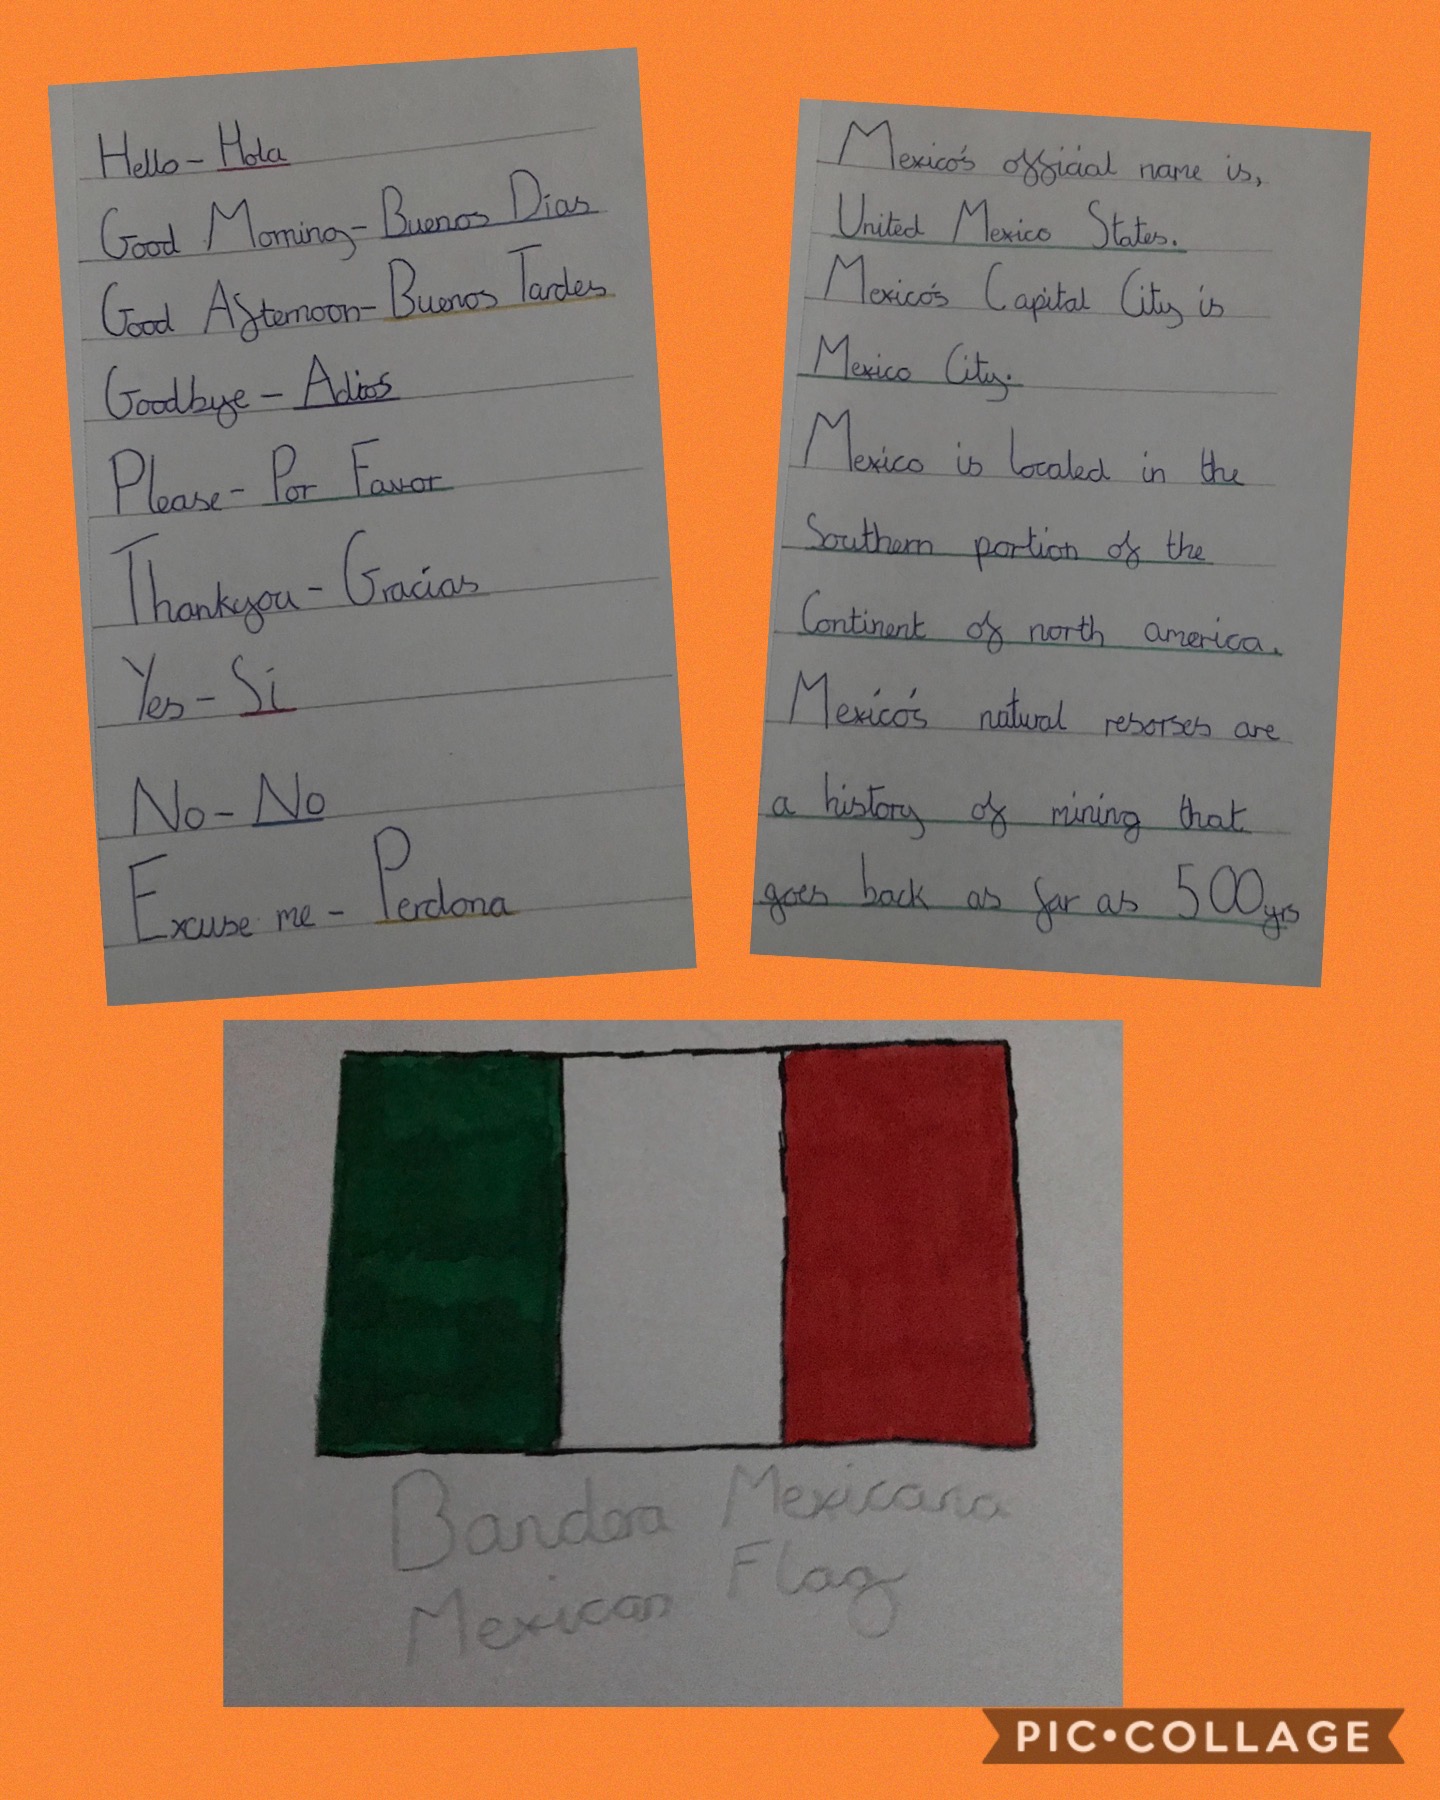 Hello - Hola
Good Morning - Buenos Dias
Good Afternoon - Buenos Tardes
Goodbye - Adios
Please - Por Favor
Thankyou - Gracias
Yes - Si
No - No
Excuse me - Perdona
Mexico's official name is,
United Mexico States.
Mexico's Capital City is
Mexico City.
Mexico is located in the
Southern portion of the
Continent of north america.
Mexico's natural resorses are
a history of mining that
goes back as far as 500yrs
Bandera Mexicana
Mexican Flag
PIC•COLLAGE